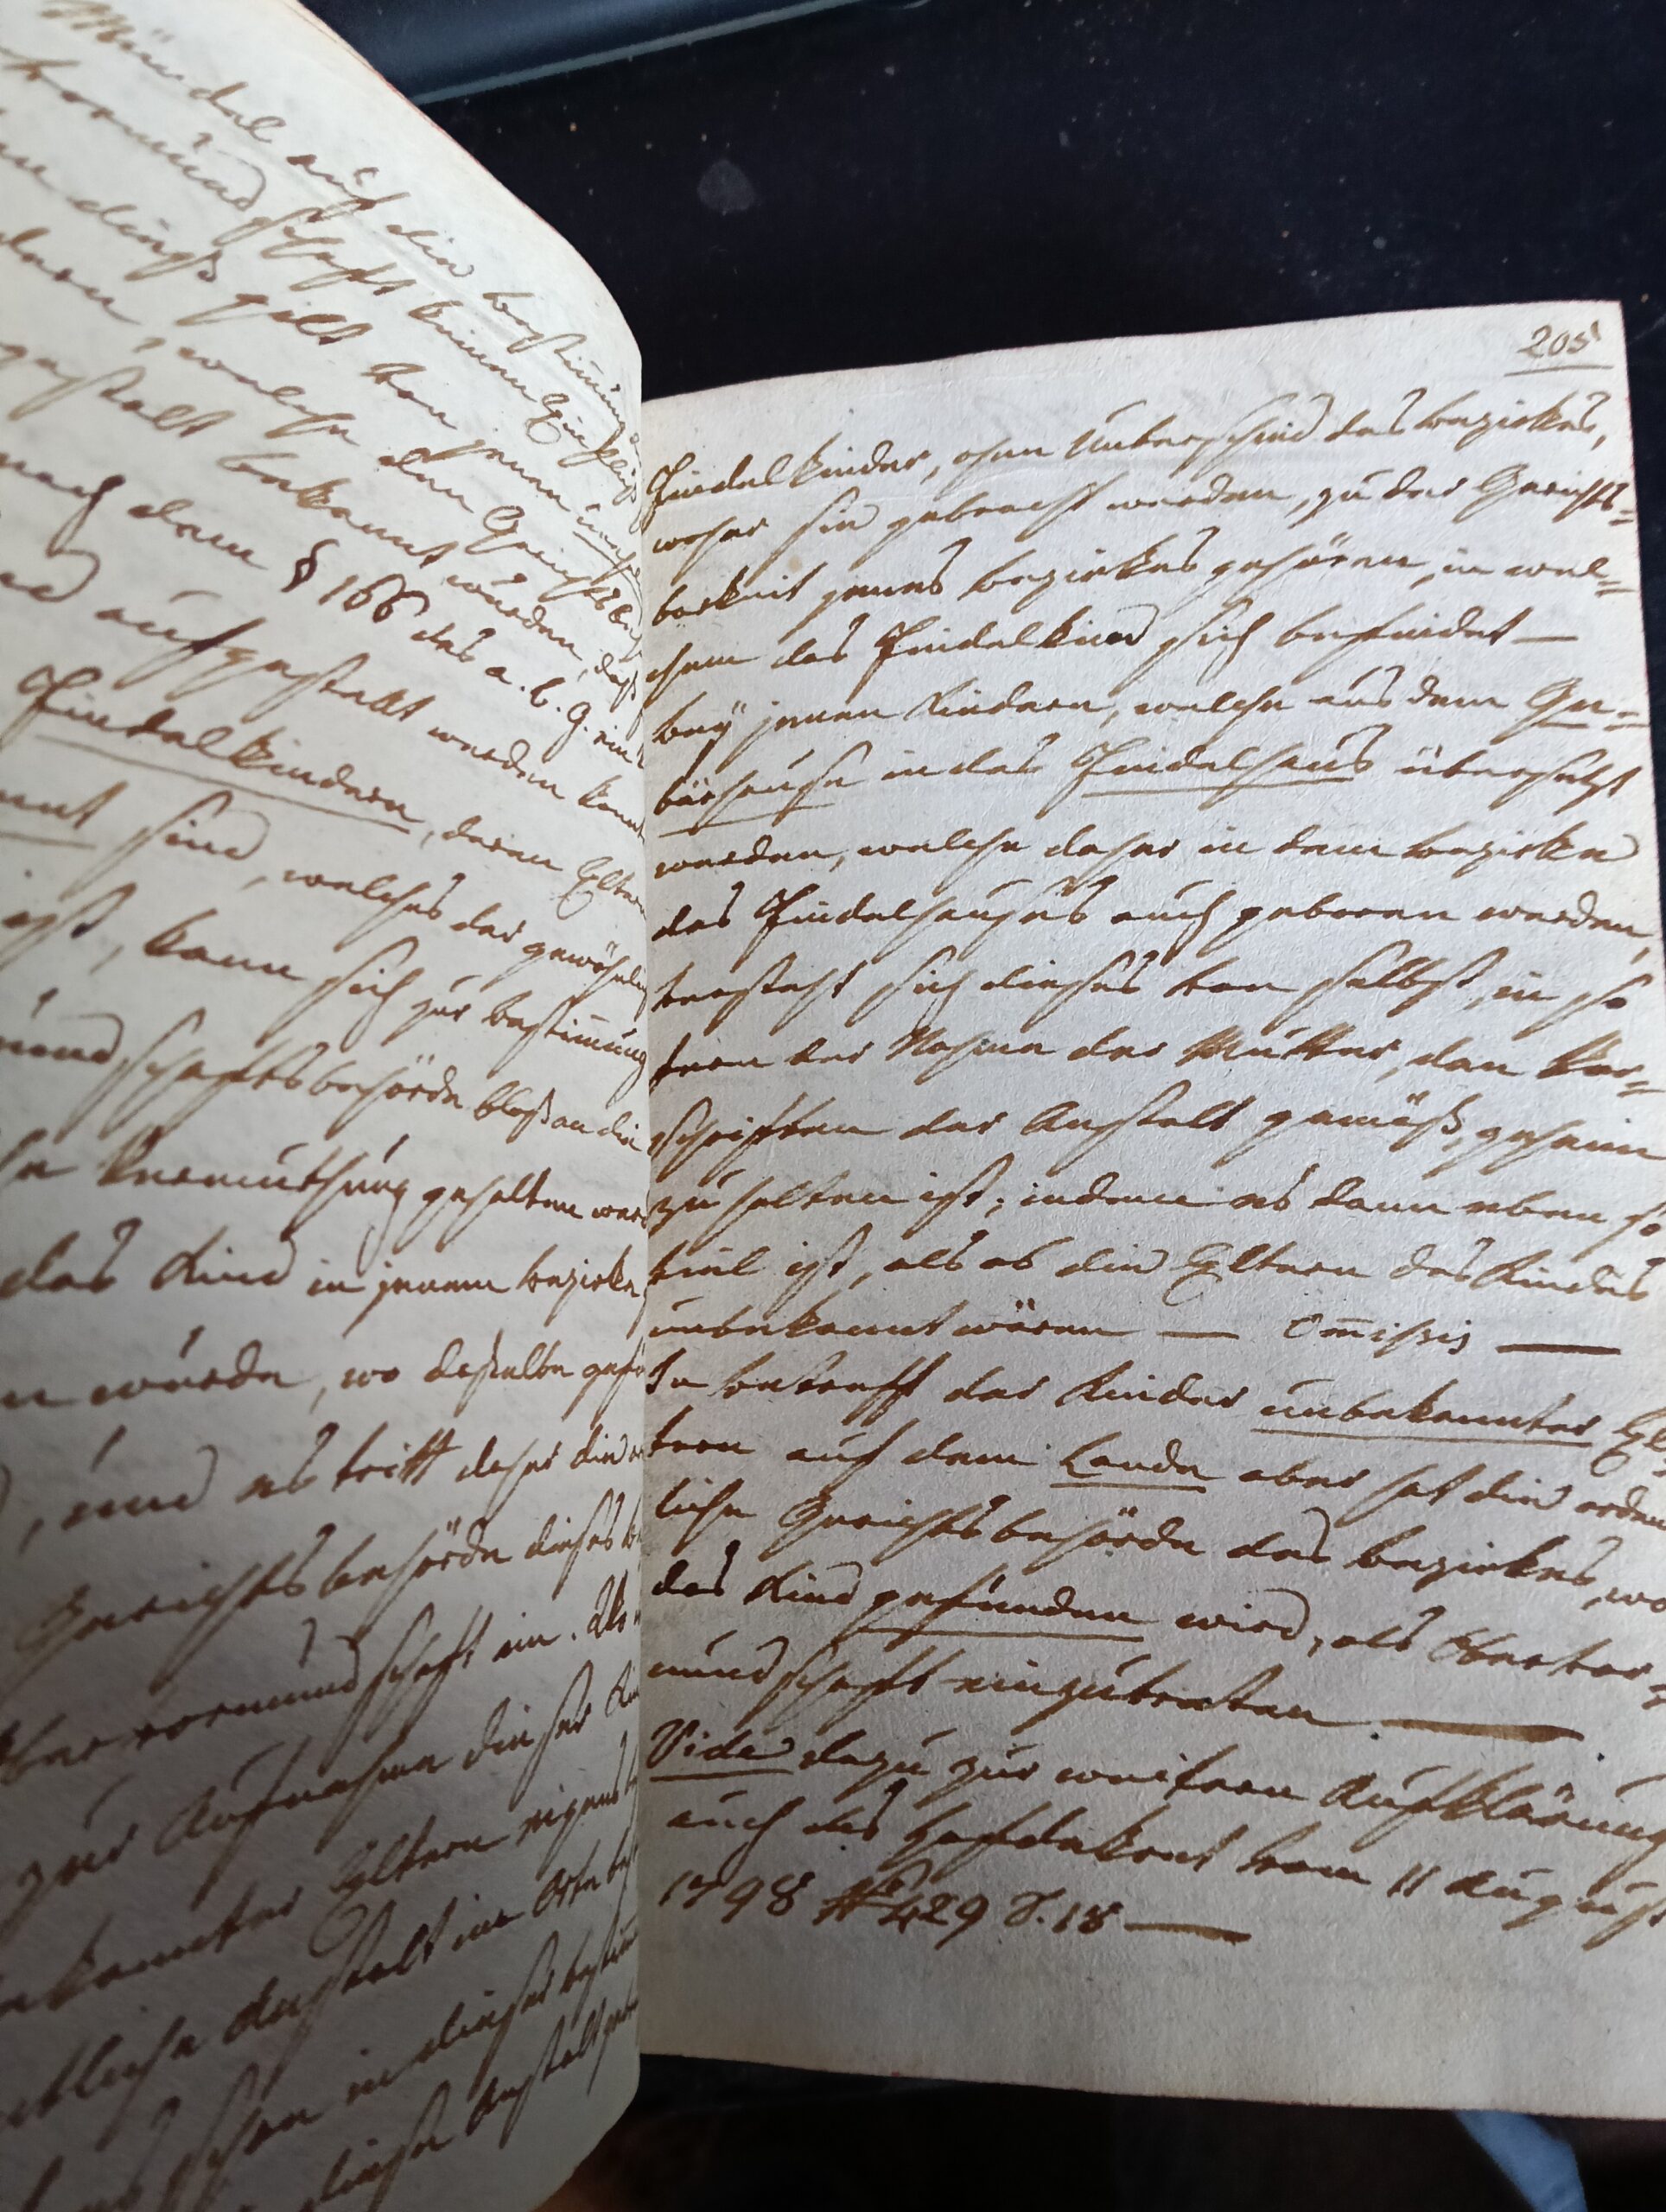 Mündel auf die bestimung
vormundschaft keinen Einfluß
dings gilt von jenen
welche den Gerichtsbe
gestalt bekannt wurden, daß
nach dem § 166 des a. b. G. ein
aufgestellt werden kann
Findelkindern, deren Eltern
sind, welches der gewöhnlich
ist, kann sich zur bestimung
schaftsbehörde bloß an die
Vermuthung gehalten wer
das Kind in jenem bezirke
wurde, wo dasselbe gefu
, und es tritt daher die
Gerichtsbehörde dieses
Obervormundschaft ein.
zur Aufnahme dieser
Eltern eigens
Anstalt im Orte
schon in dieser
diese Anstalt
205
Findelkinder, ohne Unterschied des bezirkes,
woher sie gebracht werden, zu der Gerichts=
barkeit jenes bezirkes gehören, in wel=
chem das Findelkind sich befindet —
bey jenen Kindern, welche aus dem Ge=
bärhause in das Findelhaus übersetzt
werden, welche daher in dem bezirke
des Findelhauses auch geboren werden,
versteht sich dieses von selbst, in so
fern der Nahme der Mutter, den Vor=
schriften der Anstalt gemäß, geheim
zu halten ist; indem es dann eben so
viel ist, als ob die Eltern des Kindes
unbekannt wären — Omissis —
In betreff der Kinder unbekannter El=
tern auf dem Lande aber hat die orden
liche Gerichtsbehörde des bezirkes, wo
das Kind gefunden wird, als Obervor=
mundschaft einzutreten —
Vide dazu zur weitern Aufklärung
auch das Hofdekret vom 11 August
1798 No 429 S. 18 —